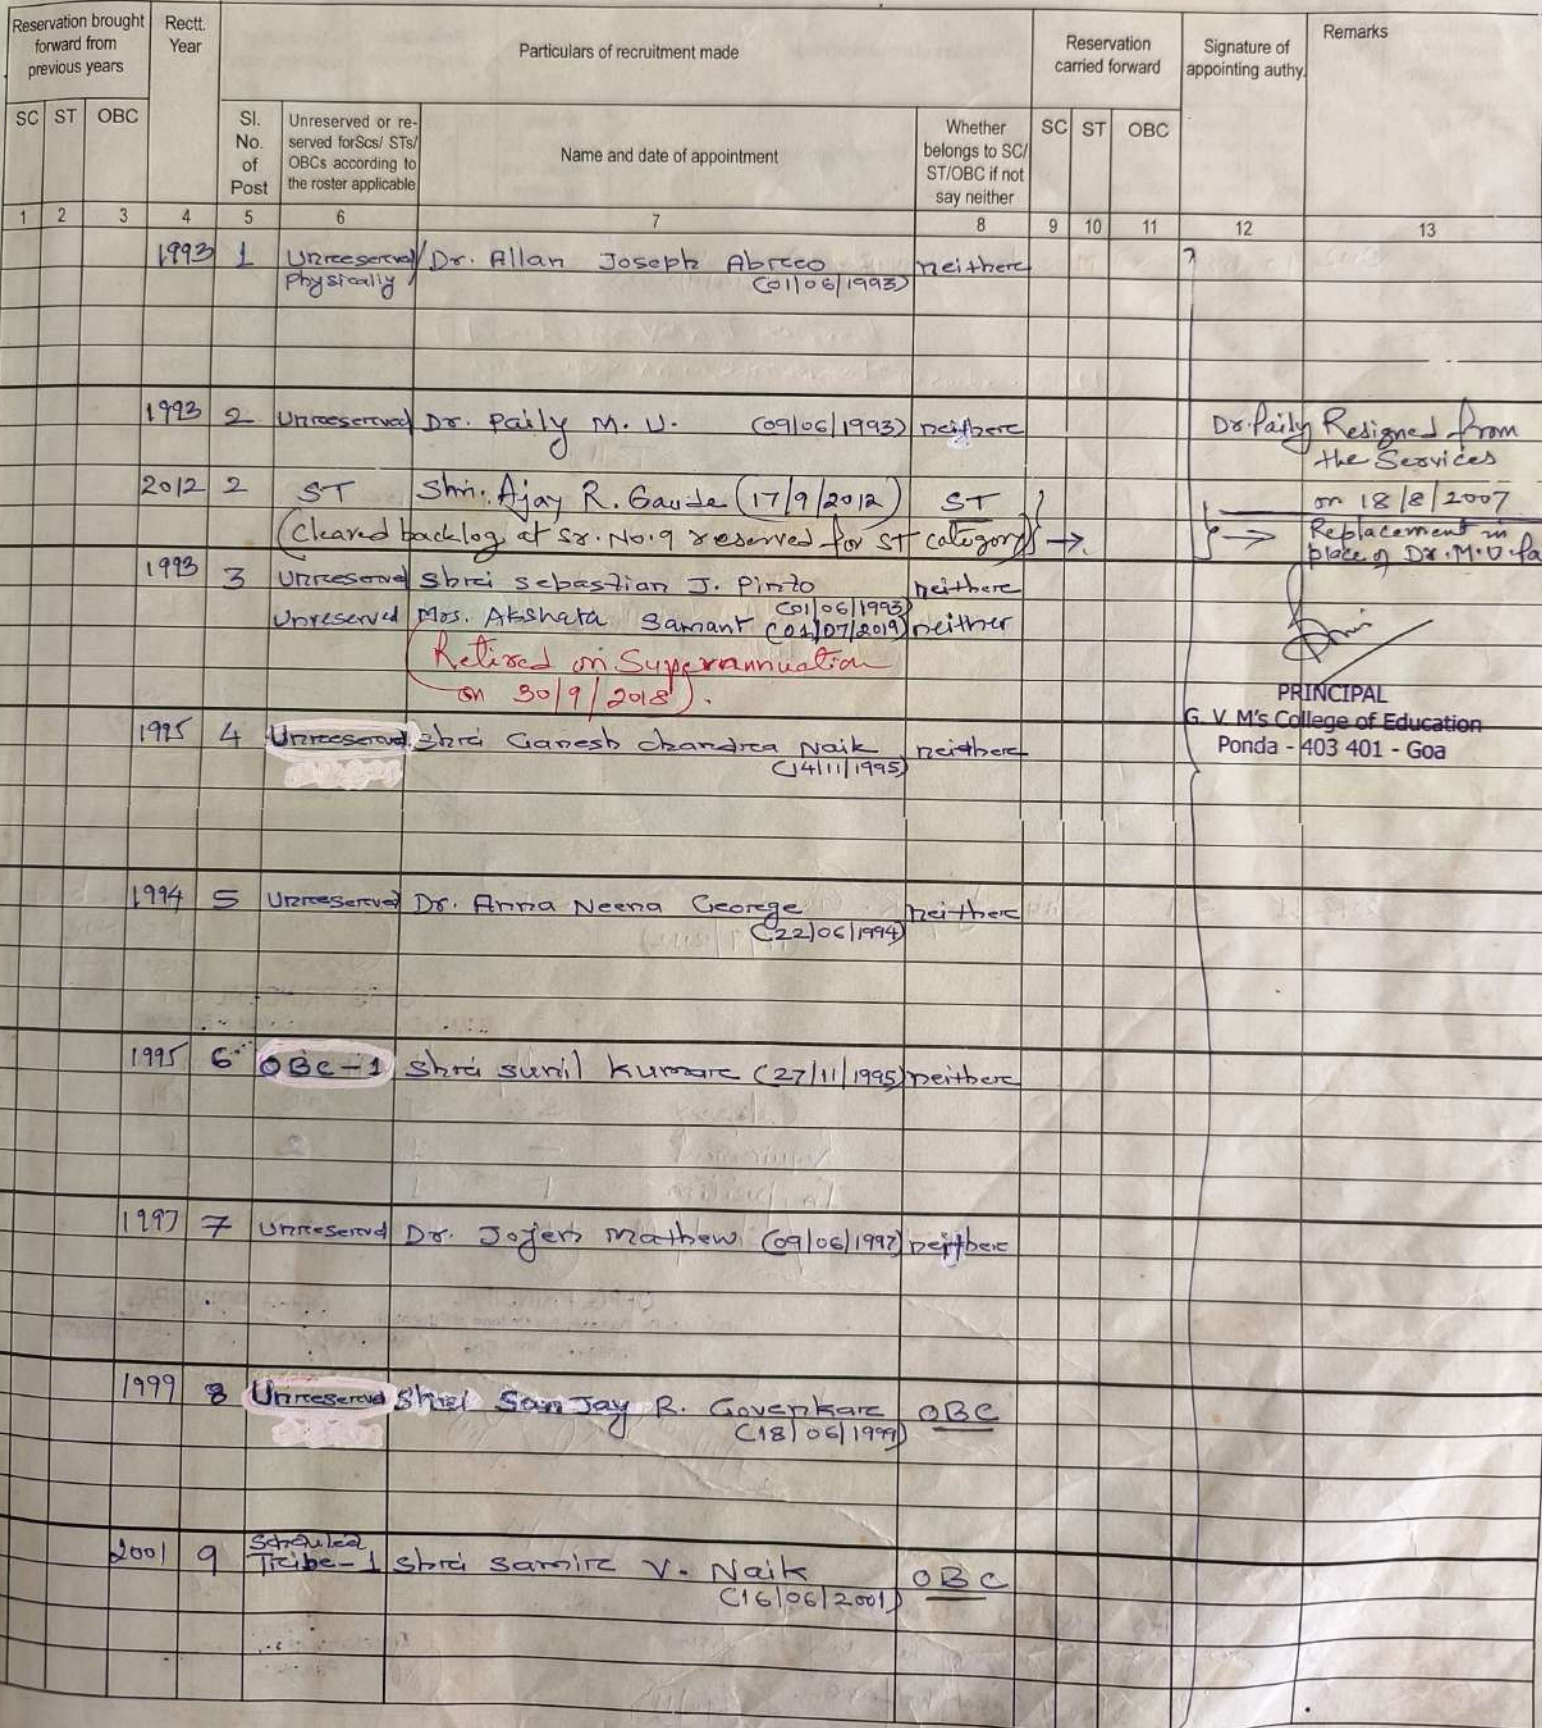 Reservation brought forward from previous years
Rectt. Year
Particulars of recruitment made
Reservation carried forward
Signature of appointing authy.
Remarks
SC ST OBC
Sl. No. of Post
Unreserved or re-served forScs/ STs/ OBCs according to the roster applicable
Name and date of appointment
Whether belongs to SC/ ST/OBC if not say neither
SC ST OBC
1 2 3 4 5 6 7 8 9 10 11 12 13
1993 1 Unreserved/ Dr. Allan Joseph Abreo neither
Physically (01/06/1993)
1993 2 Unreserved Dr. Paily M. U. (09/06/1993) neither
Dr. Paily Resigned from
the Services
on 18/8/2007
2012 2 ST Shri. Ajay R. Gaude (17/9/2012) ST
(Cleared backlog at Sr. No. 9 reserved for ST category) →
→ Replacement in
place of Dr. M.U. Pa
1993 3 Unreserved Shri Sebastian J. Pinto neither
(01/06/1993)
Unreserved Mrs. Akshata Samant (01/07/2019) neither
(Retired on Superannuation
on 30/9/2018).
PRINCIPAL
G. V M's College of Education
Ponda - 403 401 - Goa
1995 4 Unreserved Shri Ganesh Chandra Naik neither
(14/11/1995)
1994 5 Unreserved Dr. Anna Neena George neither
(22/06/1994)
1995 6 OBC-1 Shri Sunil Kumar (27/11/1995) neither
1997 7 Unreserved Dr. Jojen Mathew (09/06/1997) neither
1999 8 Unreserved Shri Sanjay R. Govenkar OBC
(18/06/1999)
2001 9 Scheduled
Tribe-1 Shri Samir V. Naik OBC
(16/06/2001)